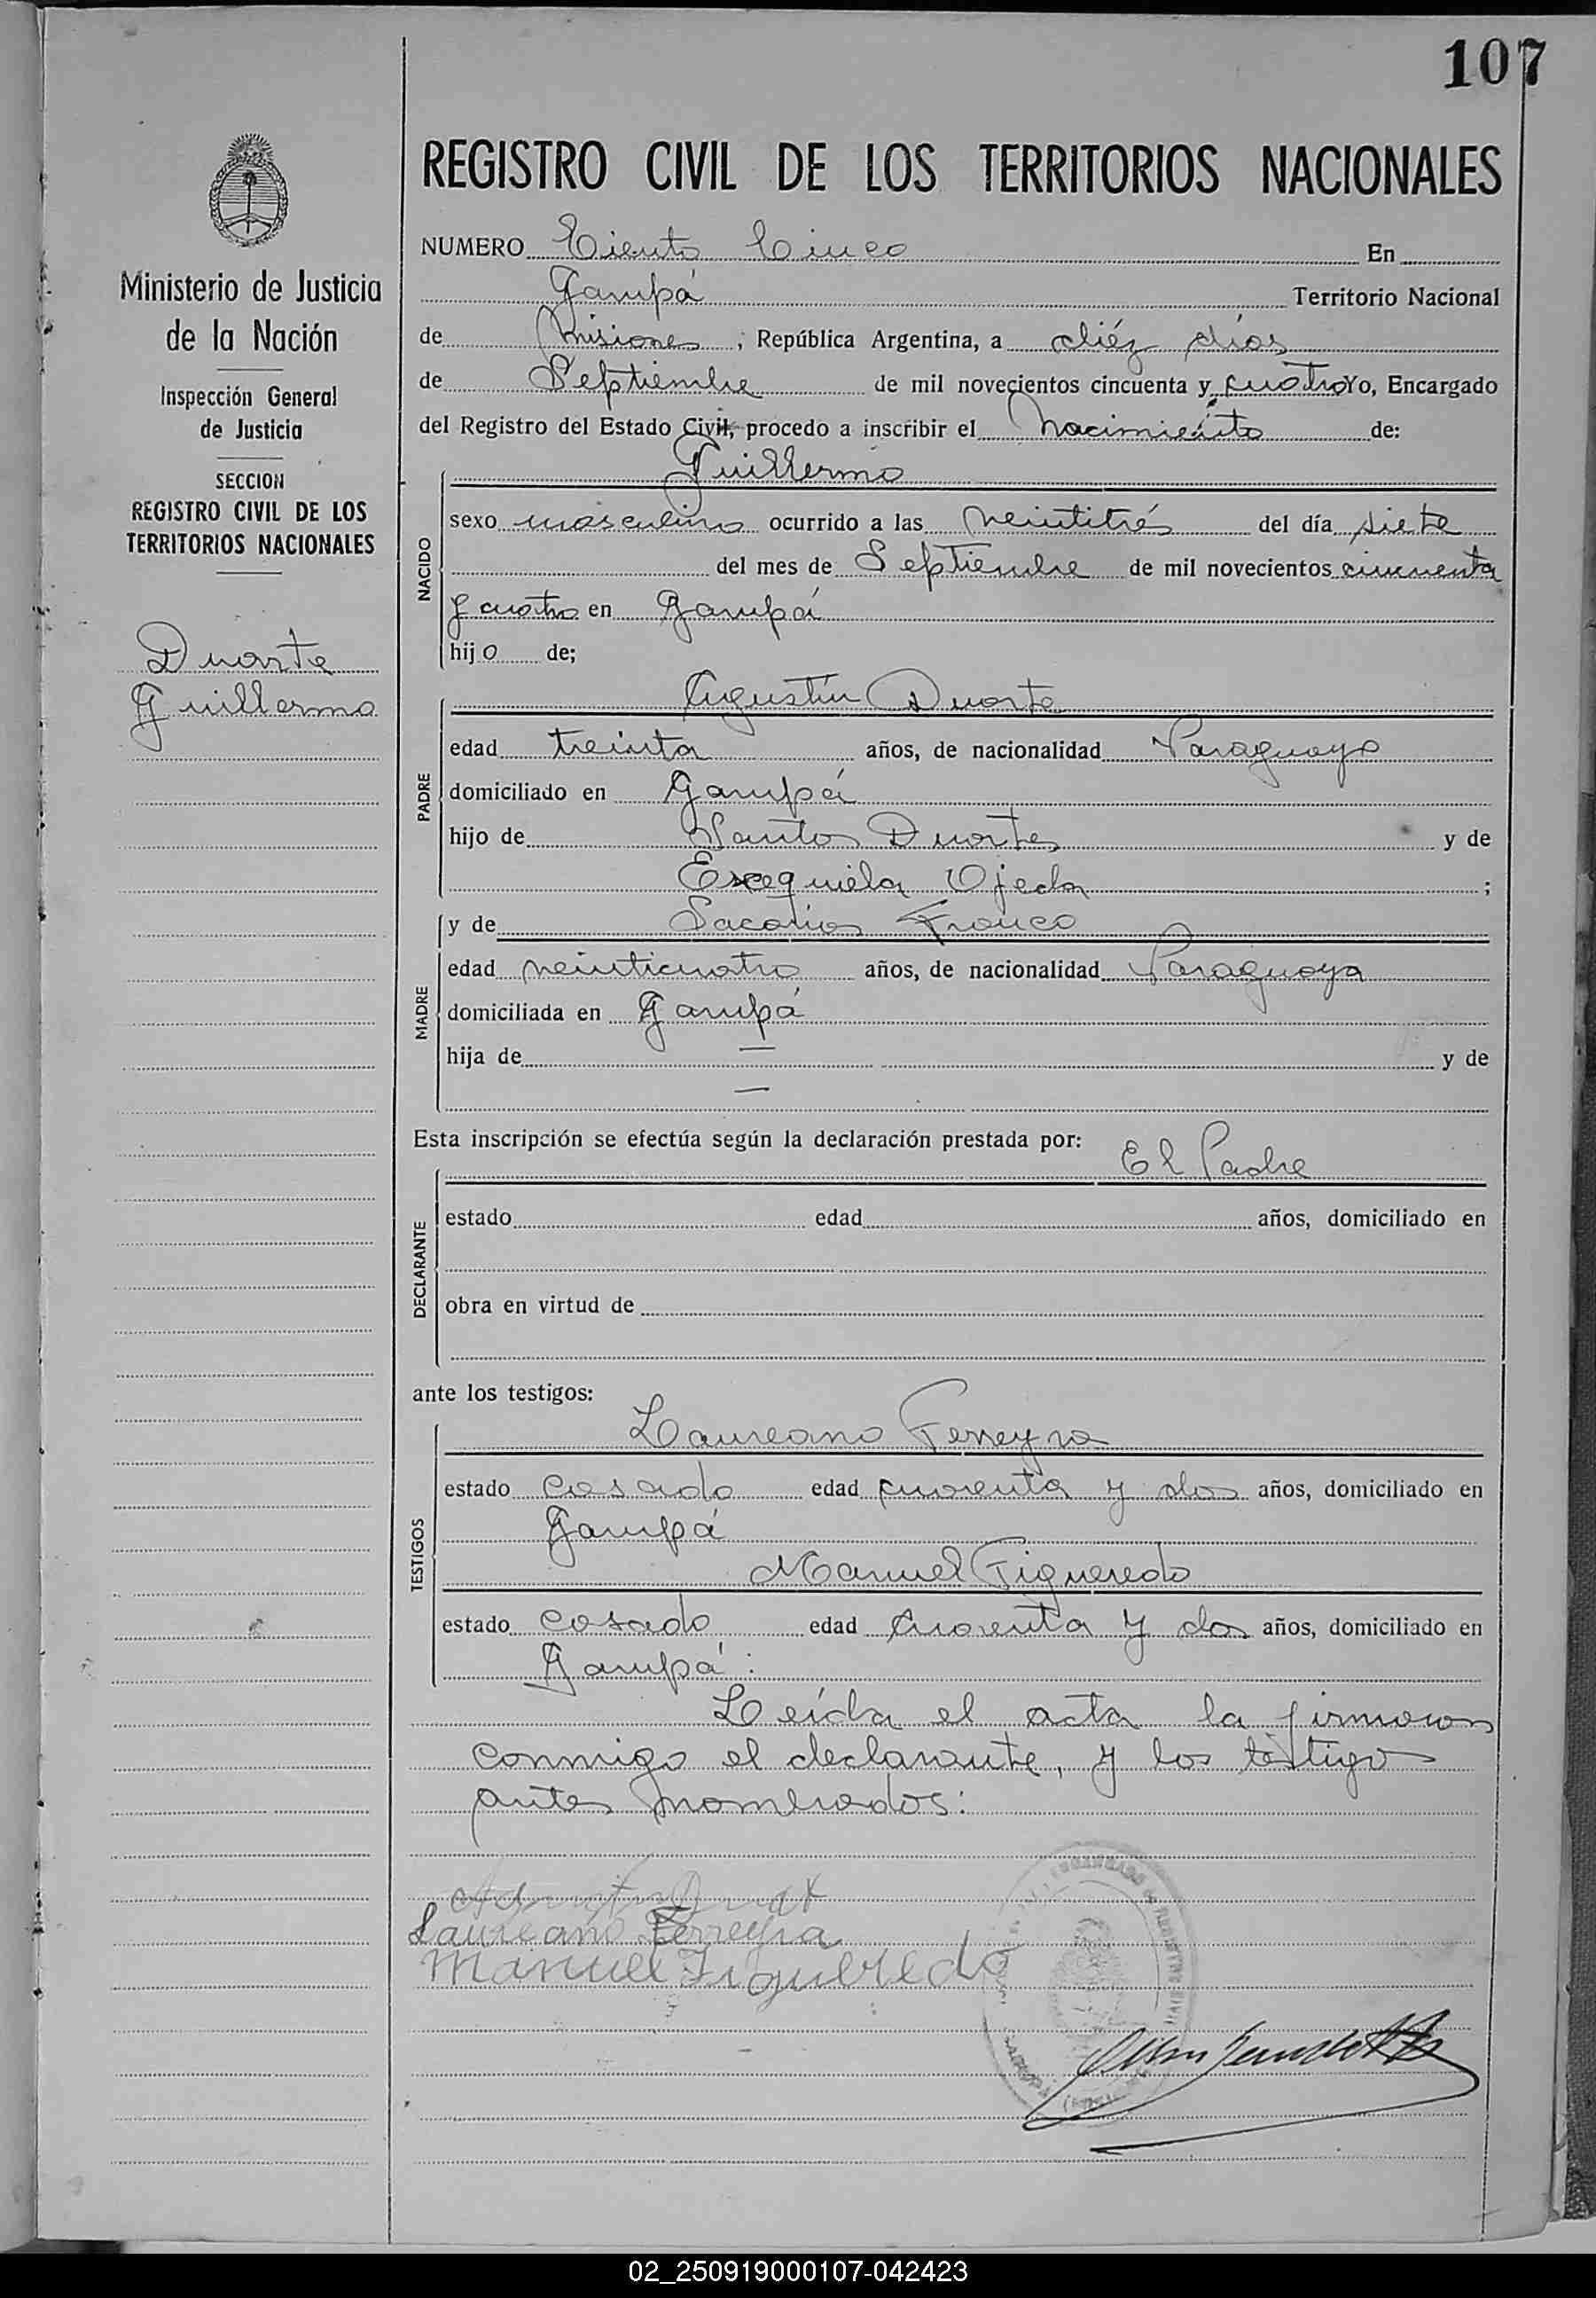 107
REGISTRO CIVIL DE LOS TERRITORIOS NACIONALES
Ministerio de Justicia
de la Nación
Inspección General
de Justicia
SECCION
REGISTRO CIVIL DE LOS
TERRITORIOS NACIONALES
Duarte
Guillermo
NUMERO Ciento Cinco En
Garupá Territorio Nacional
de Misiones, República Argentina, a diéz días
de Septiembre de mil novecientos cincuenta y cuatro Yo, Encargado
del Registro del Estado Civil, procedo a inscribir el Nacimiento de:
Guillermo
NACIDO
sexo masculino ocurrido a las veintitrés del día siete
del mes de Septiembre de mil novecientos cincuenta
y cuatro en Garupá
hijo de;
Agustín Duarte
PADRE
edad treinta años, de nacionalidad Paraguayo
domiciliado en Garupá
hijo de Santos Duarte y de
Exequiela Ojeda ;
y de Sacarias Franco
MADRE
edad veinticuatro años, de nacionalidad Paraguaya
domiciliada en Garupá
hija de — y de
—
Esta inscripción se efectúa según la declaración prestada por:
El Padre
DECLARANTE
estado edad años, domiciliado en
obra en virtud de
ante los testigos:
Laureano Ferreyra
TESTIGOS
estado Casado edad cuarenta y dos años, domiciliado en
Garupá
Manuel Figueredo
estado Casado edad Cuarenta y dos años, domiciliado en
Garupá:
Leída el acta la firmaron
conmigo el declarante, y los testigos
antes nombrados:
Laureano Ferreyra
Manuel Figueredo
02_250919000107-042423